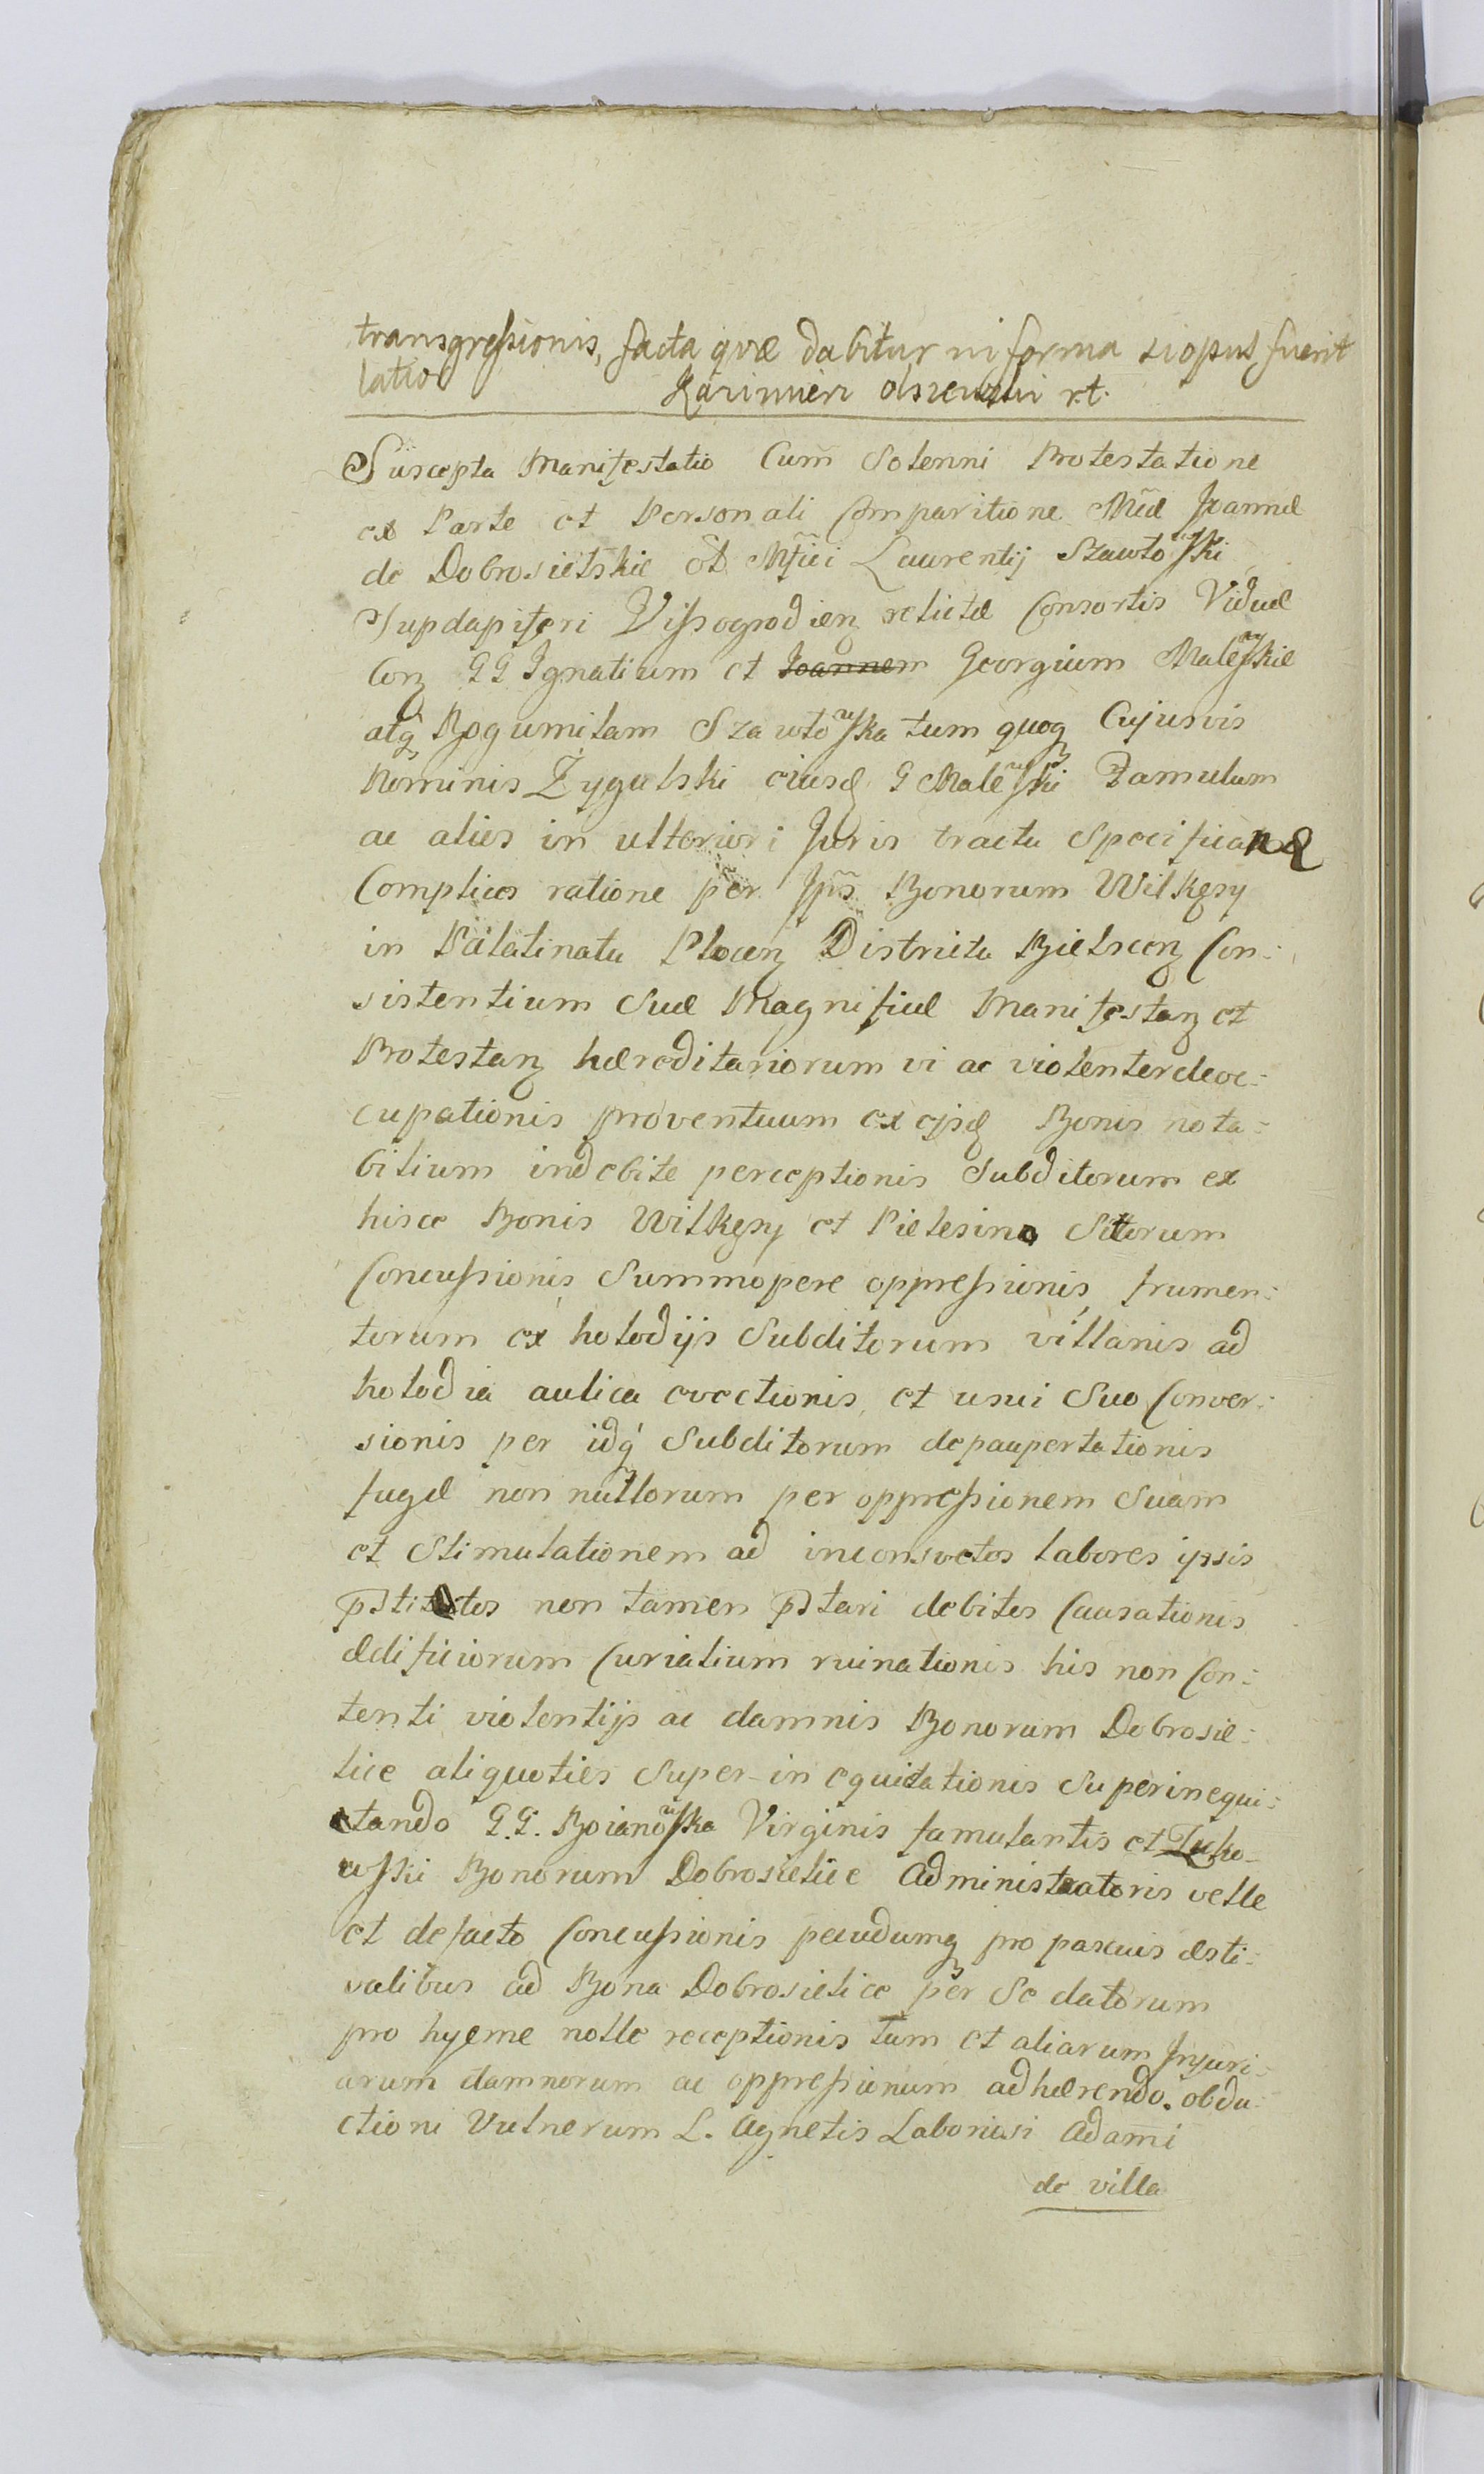 transgressionis, facta quæ dabitur in forma si opus fuerit
latio
Kazimierz Olszewski r.t.
Suscepta Manifestatio Cum Solenni Protestatione
ex Parte et Personali Comparitione Mcæ Joannæ
de Dobrosielskie ol Mfici Laurentij Szawłowski
Supdapiferi Vissogrodien relictæ Consortis Viduæ
Con GG Ignatium et Joannem Georgium Malewskie
atq Bogumilam Szawłowska tum quoq Cujusvis
Nominis Zygulski eiusd G Malewski Famulum
ac alios in ulteriori Juris tractu Specificand
Complices ratione per Jps Bonorum Wilkęsy
in Palatinatu Plocen Districtu Bielscen Con=
sistentium Suæ Magnificæ Manifestan et
Protestan hæreditariorum vi ac violenter deoc=
cupationis proventuum ex ejsd Bonis nota=
bilium indebite perceptionis Subditorum ex
hisce Bonis Wilkęsy et Sitorum
Concussionis Summopere oppressionis, frumen=
torum ex holodijs Subditorum villanis ad
holodia aulica evectionis, et usui Suo Conver=
sionis per idq Subditorum depaupertationis
fugæ non nullorum per oppressionem Suam
et Stimulationem ad inconsvetos labores ipsis
pstitos non tamen pstari debitos Causationis
ædificiorum Curialium ruinationis his non Con=
tenti violentijs ac damnis Bonorum Dobrosie=
lice aliquoties Super-in equitationis Superinequi=
tando G.G. Boianowska Virginis famulantis et Łucho-
wski Bonorum Dobrosielice Administratoris velle
et defacto Concussionis pecudumq pro pascuis æsti=
valibus ad Bona Dobrosielice per Se datorum
pro hyeme nolle receptionis tum et aliarum Injuri=
arum damnorum ac oppressionum adhærendo. obdu=
ctioni Vulnerum L. Agnetis Adami
de villa